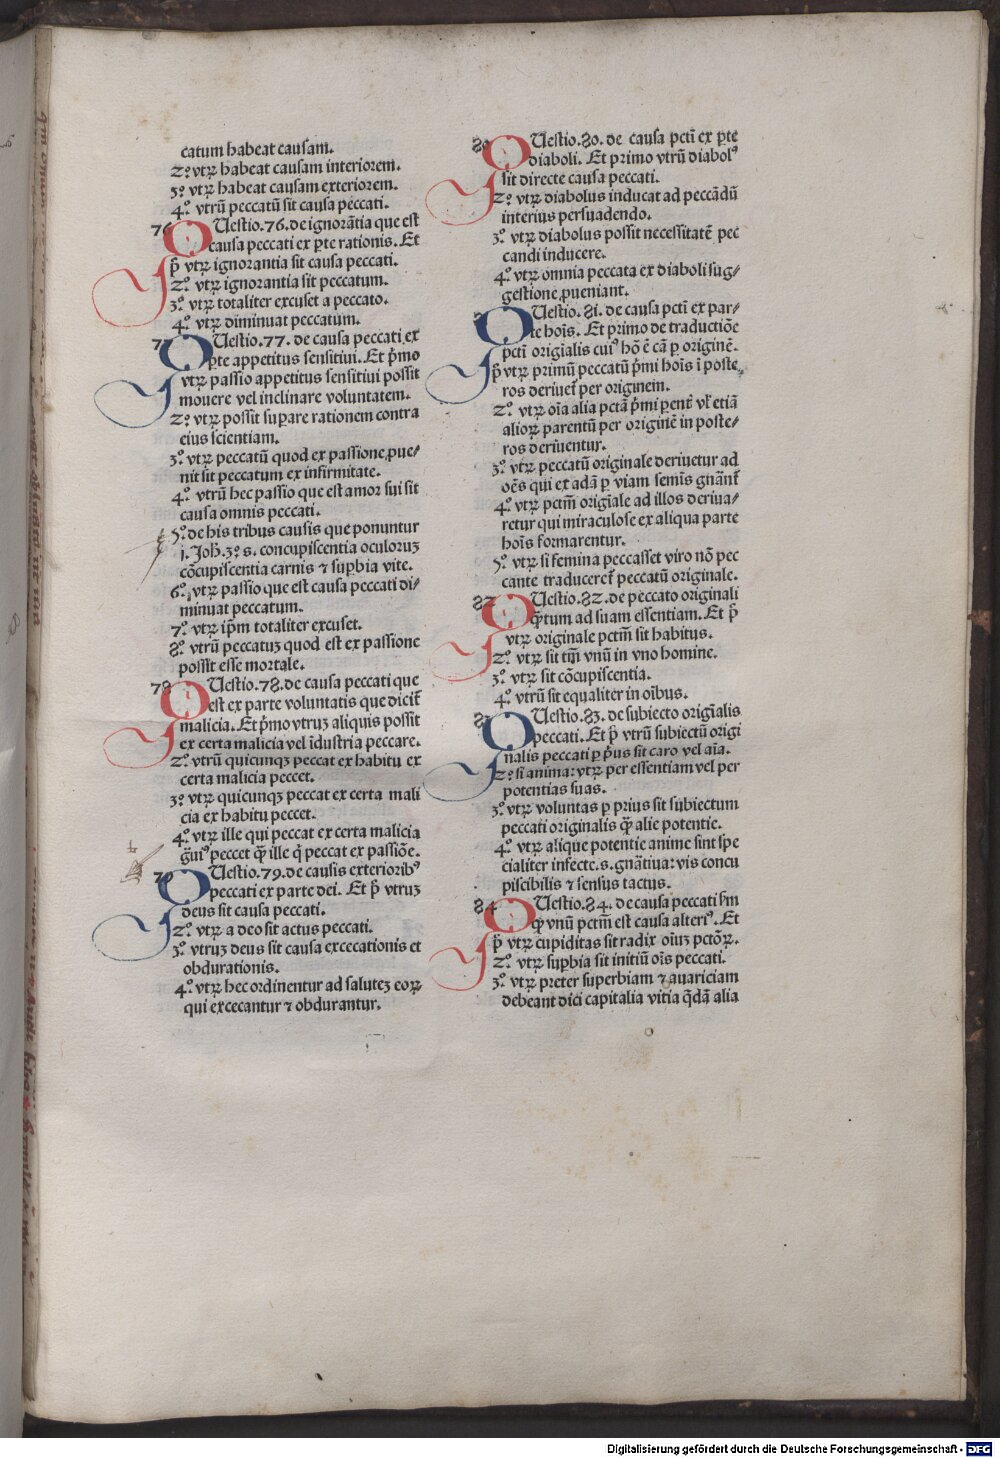 catum habeat causam.
2º vtꝝ habeat causam interiorem.
3º vtꝝ habeat causam exteriorem.
4º vtrū peccatū sit causa peccati.
76 QUestio.76.de ignorātia que est
causa peccati ex ꝑte rationis. Et
p̄ vtꝝ ignorantia sit causa peccati.
2º vtꝝ ignorantia sit peccatum.
3º vtꝝ totaliter excuset a peccato.
4º vtꝝ diminuat peccatum.
QUestio.77. de causa peccati ex
ꝑte appetitus sensitiui. Et p̄mo
vtꝝ passio appetitus sensitiui possit
mouere vel inclinare voluntatem.
2º vtꝝ possit suꝑare rationem contra
eius scientiam.
3º vtꝝ peccatū quod ex passione ꝓue-
nit sit peccatum ex infirmitate.
4º vtrū hec passio que est amor sui sit
causa omnis peccati.
5º de his tribus causis que ponuntur
j. Joh̄. 3º s. concupiscentia oculoruꝫ
cōcupiscentia carnis ⁊ suꝑbia vite.
6º vtꝝ passio que est causa peccati di-
minuat peccatum.
7º vtꝝ ip̄m totaliter excuset.
8º vtrū peccatuꝫ quod est ex passione
possit esse mortale.
78 QUestio.78.de causa peccati que
est ex parte voluntatis que dicit̄
malicia. Et p̄mo vtruꝫ aliquis possit
ex certa malicia vel īdustria peccare.
2º vtrū quicunqꝫ peccat ex habitu ex
certa malicia peccet.
3º vtꝝ quicunqꝫ peccat ex certa mali
cia ex habitu peccet.
4º vtꝝ ille qui peccat ex certa malicia
g̃uiꝰ peccet q̄ꝫ ille q̄ peccat ex passiōe.
79 QUestio.79.de causis exterioribꝰ
peccati ex parte dei. Et p̄ vtruꝫ
deus sit causa peccati.
2º vtꝝ a deo sit actus peccati.
3º vtruꝫ deus sit causa excecationis et
obdurationis.
4º vtꝝ hec ordinentur ad saluteꝫ eoꝝ
qui excecantur ⁊ obdurantur.
80 QUestio.80. de causa pcti̅ ex ꝑte
diaboli. Et primo vtrū diabolꝰ
sit directe causa peccati.
2º vtꝝ diabolus inducat ad peccādū
interius persuadendo.
3º vtꝝ diabolus possit necessitatē pec
candi inducere.
4º vtꝝ omnia peccata ex diaboli sug-
gestione ꝓueniant.
QUestio.81. de causa pcti̅ ex par-
te hoīs. Et primo de traductiōe
pcti̅ origīalis cuiꝰ hō ē cā ꝑ originē.
p̄ vtꝝ primū peccatū p̄mi hoīs ī poste
ros deriuet̄ per originem.
2º vtꝝ oīa alia pctā p̄mi ꝑent̄ vl̄ etiā
alioꝝ parentū per originē in poste-
ros deriuentur.
3º vtꝝ peccatū originale deriuetur ad
oēs qui ex adā ꝑ viam semīs gnānt̄
4º vtꝝ pctm̅ origīale ad illos deriua-
retur qui miraculose ex aliqua parte
hoīs formarentur.
5º vtꝝ si femina peccasset viro nō pec
cante traduceret̄ peccatū originale.
82 QUestio.82. de peccato originali
q̄ꝫtum ad suam essentiam. Et p̄
vtꝝ originale pctm̅ sit habitus.
2º vtꝝ sit tm̄ vnū in vno homine.
3º vtꝝ sit cōcupiscentia.
4º vtrū sit equaliter in oībus.
QUestio.83. de subiecto origīalis
peccati. Et p̄ vtrū subiectū origi
nalis peccati ꝑ p̄us sit caro vel aīa.
2º si anima: vtꝝ per essentiam vel per
potentias suas.
3º vtꝝ voluntas ꝑ prius sit subiectum
peccati originalis q̄ꝫ alie potentie.
4º vtꝝ alique potentie anime sint spe
cialiter infecte.s.gnātiua: vis concu
piscibilis ⁊ sensus tactus.
84 QUestio.84. de causa peccati s̄m
q̄ vnū pctm̅ est causa alteriꝰ. Et
p̄ vtꝝ cupiditas sit radix oīuꝫ pctōꝝ.
2º vtꝝ suꝑbia sit initiū oīs peccati.
3º vtꝝ preter superbiam ⁊ auariciam
debeant dici capitalia vitia q̄dā alia
Digitalisierung gefördert durch die Deutsche Forschungsgemeinschaft - DFG